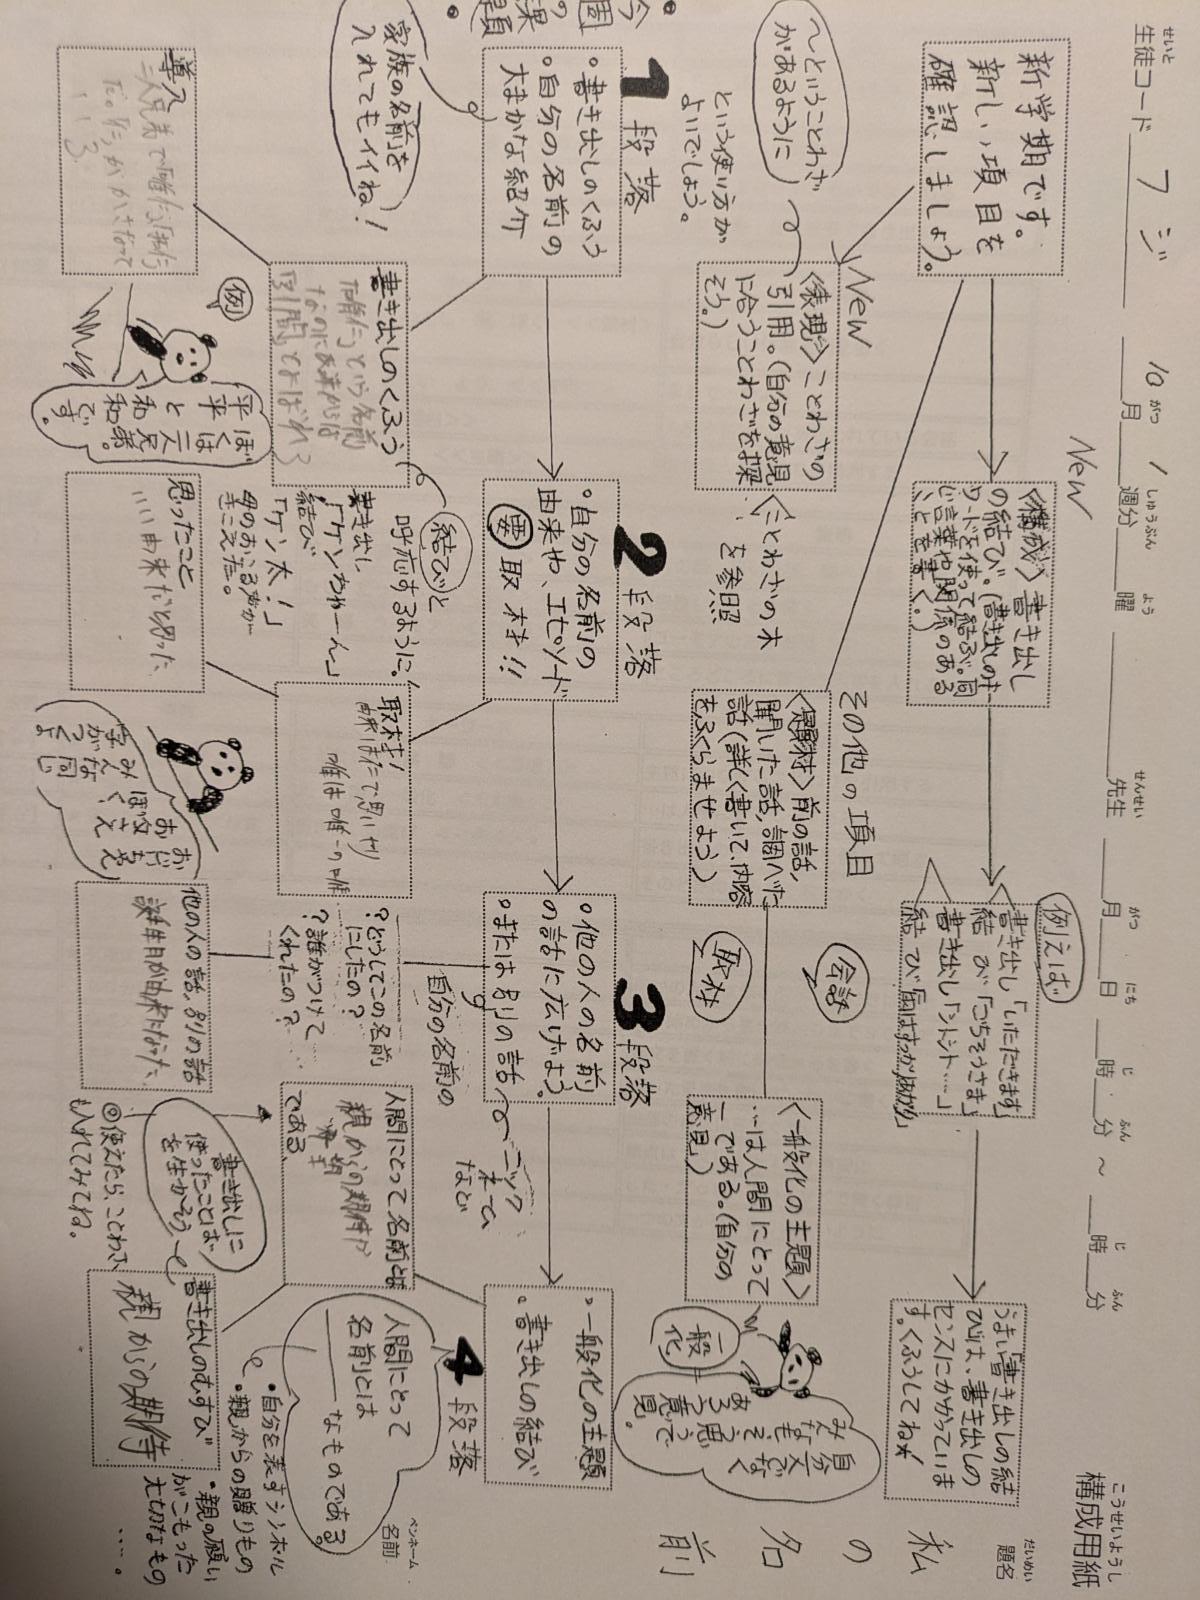 構成用紙
こうせいようし
題名
だいめい
私の名前
名前
ペンネーム
生徒コード フジ
せいと
10月1週分 曜 先生 月 日 時 分 〜 時 分
がつ しゅうぶん よう せんせい がつ にち じ ふん じ ふん
新学期です。
新しい項目を
確認しましょう。
New
〈構成〉書き出し
の結び。(書き出しのキー
ワードを使って結ぶ。同
じ言葉や関係のある
ことを書く。)
例えば
書き出し「いただきます」
結び「ごちそうさま」
書き出し「シトシト……」
うまい「書き出しの結
び」は、書き出しの
センスにかかっていま
す。くふうしてね☆
New
〈表現〉ことわざの
引用。(自分の意見
に合うことわざを探
そう。)
〜ということわざ
があるように
という使い方が
よいでしょう。
ことわざの木
を参照
その他の項目
〈題材〉前の話,
聞いた話,調べた
話(詳しく書いて、内容
をふくらませよう)
会話
取材
〈一般化の主題〉
…は人間にとって
―である。(自分の
意見)
一般化
自分だけでなく
みんなもそう思うで
あろう意見。
今週の課題
1段落
・書き出しのくふう
・自分の名前の
大まかな紹介
家族の名前を
入れてもイイね!
2段落
・自分の名前の
由来や、エピソード
要取材!!
3段落
・他の人の名前
の話に広げよう。
・または別の話
ニック
ネーム
など
4段落
・一般化の主題
・書き出しの結び
書き出しのくふう
「唯た」という名前
結びと
呼応するように!
書き出し
「ケンちゃーん」
結び
「ケン太!」
母のおこる声が
きこえた。
取材!
自分の名前の
?どうしてこの名前
にしたの?
?誰がつけて
くれたの?
人間にとって名前とは
親からの期待
である
人間にとって
名前とは
なものである。
・自分を表すシンボル
・親からの贈りもの
・親の願い
がこもった
大切なもの
……。
導入
例
ぼくは平
平と和
和兄弟。
です。
思ったこと
いい由来だと思った
みんな同じ
字がつくよ
他の人の話,別の話
誕生日が由来だなった
書き出しに
使ったことば
を生かそう
◎使えたら、ことわざ
も入れてみてね。
書き出しのむすび
親からの期待